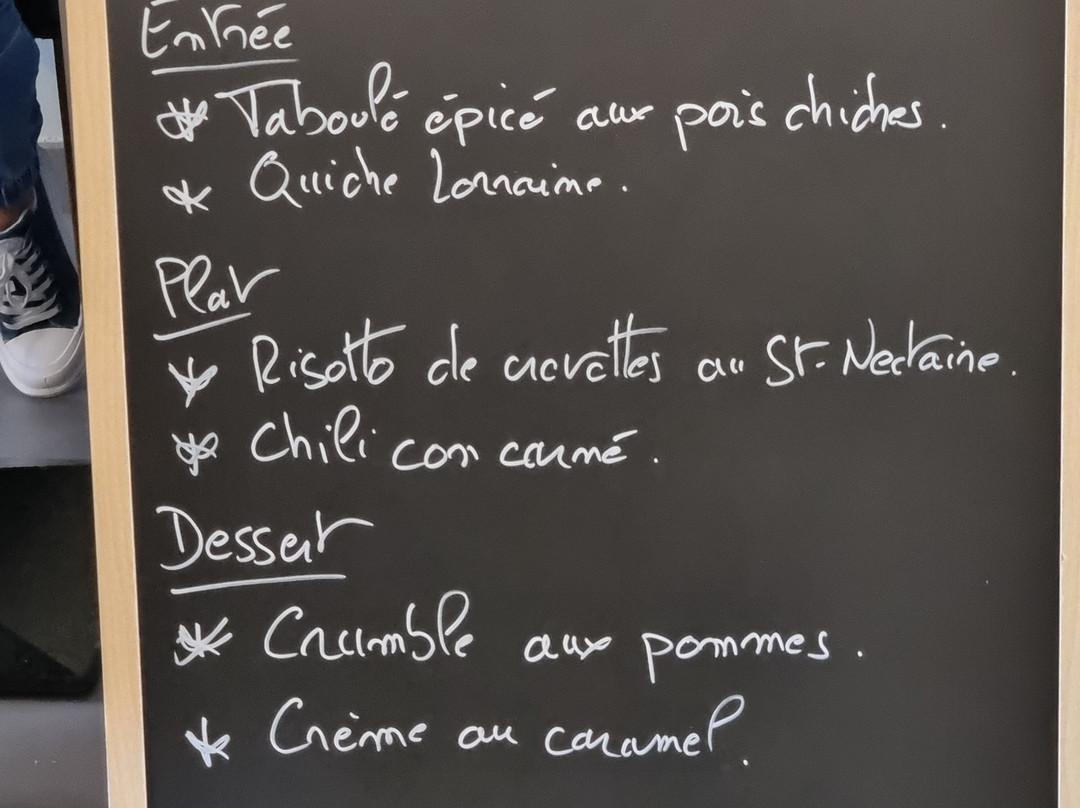 Entrée
* Taboulé épicé aux pois chiches.
* Quiche Lorraine.
Plat
* Risotto de crevettes au St-Nectaire.
* Chili con carné.
Dessert
* Crumble aux pommes.
* Crème au caramel.